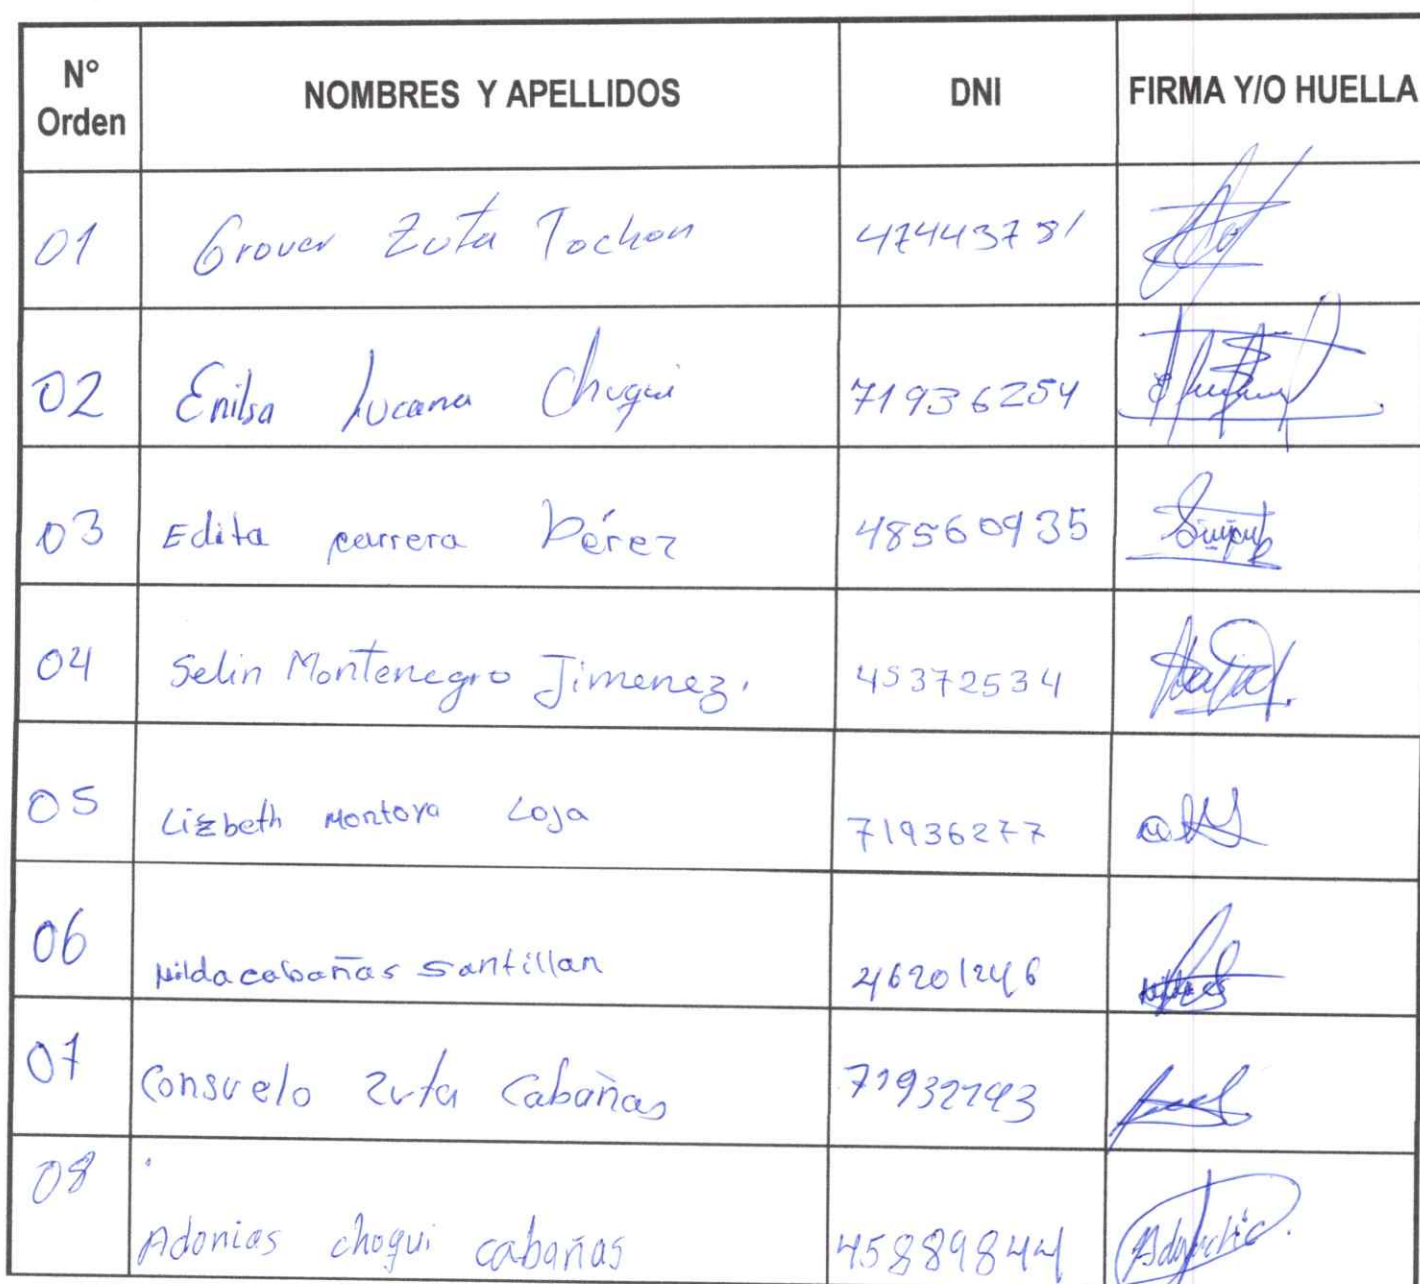 N° Orden NOMBRES Y APELLIDOS DNI FIRMA Y/O HUELLA
01 Grover Zuta Tochon 47443781
02 Enilsa Lucana Chuqui 71936254
03 Edita parrera Pérez 48560935
04 Selin Montenegro Jimenez. 45372534
05 Lizbeth Montoya Loja 71936277
06 Nilda cabañas santillan 46201246
07 Consuelo Zuta Cabañas 71932793
08 Adonias choqui cabañas 45889844